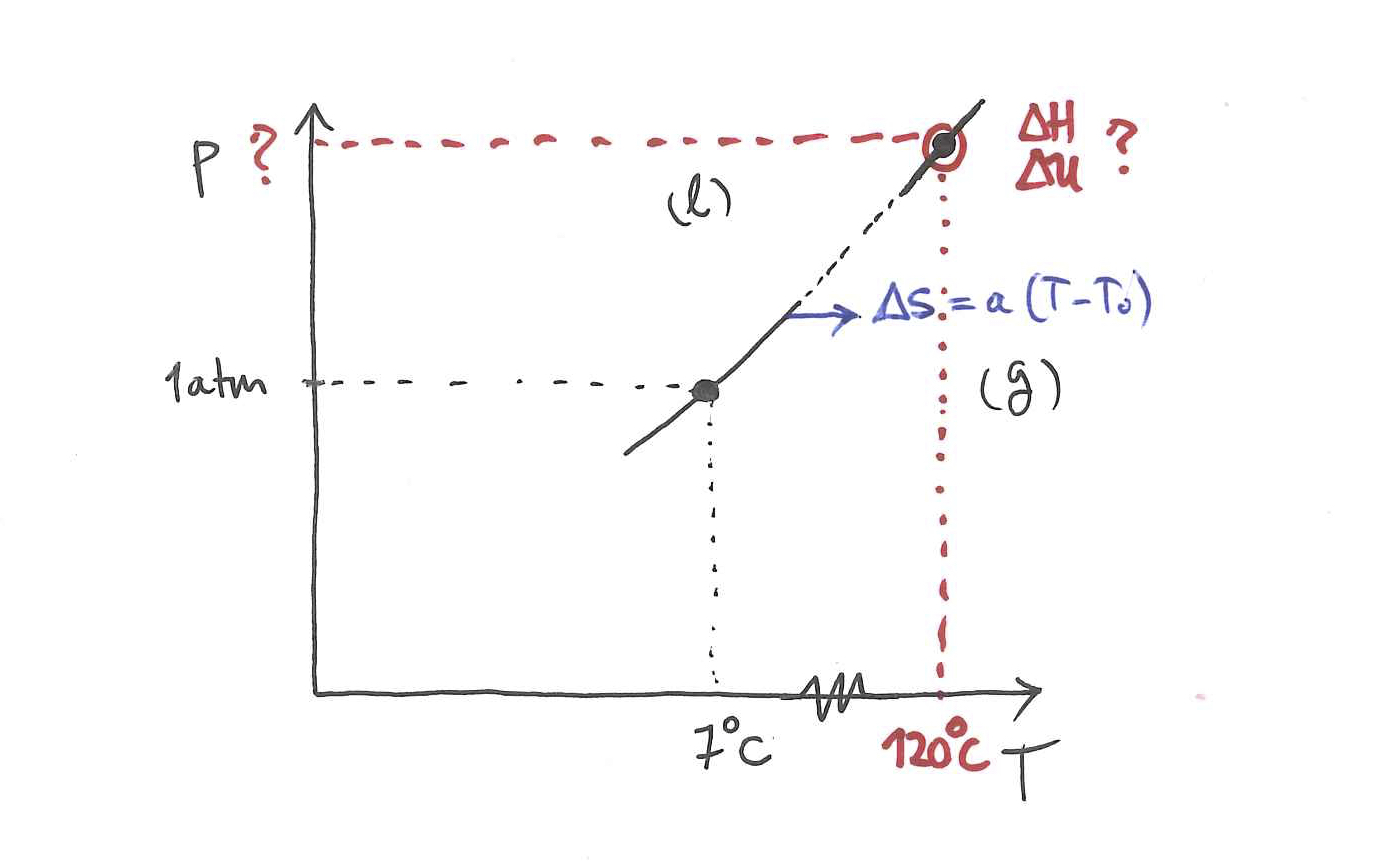 P ?
(l)
ΔH
ΔU ?
ΔS = a (T-T₀)
1atm
(g)
7°C
120°C
T